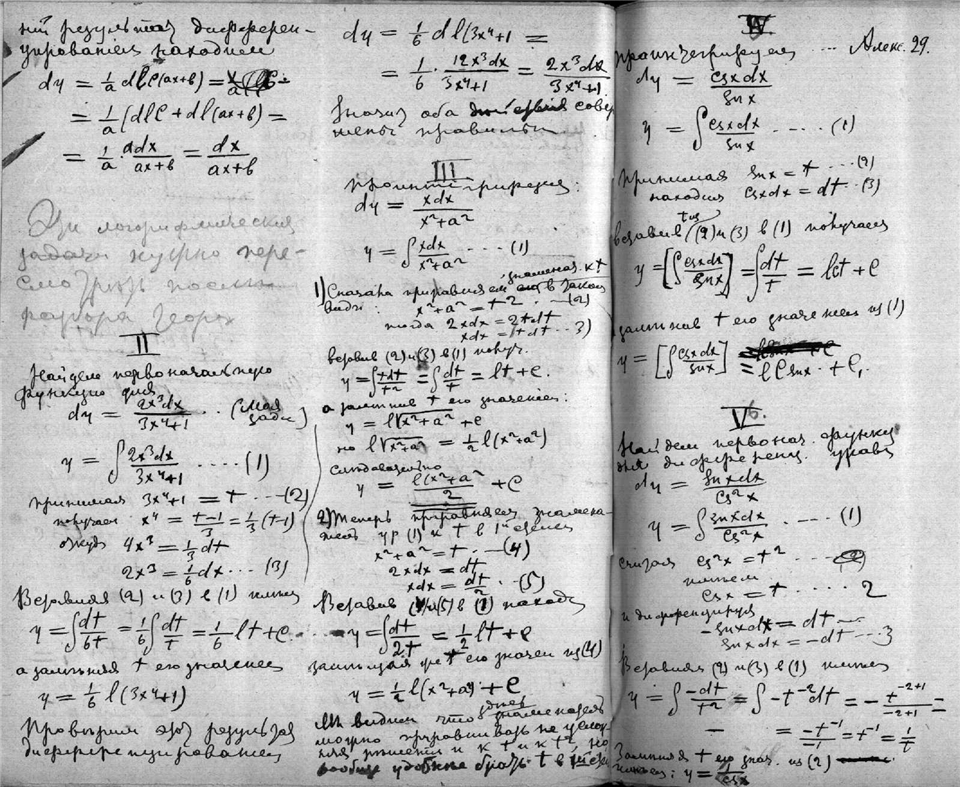 ний результат дифферен-
цированием находим
dy = 1/a dlC(ax+b) =
= 1/a (dlC + dl(ax+b) =
= 1/a · adx/ax+b = dx/ax+b
логарифмическия
задачи нужно пере-
смотреть
II
Найдем первоначальную
функцию для
dy = 2x³dx/3x⁴+1 ... (моя
задач)
y = ∫ 2x³dx/3x⁴+1 .... (1)
принимая 3x⁴+1 = t ... (2)
получаем x⁴ = t-1/3 = 1/3 (t-1)
откуд 4x³ = 1/3 dt
2x³ = 1/6 dx ... (3)
Вставляя (2) и (3) в (1) имеем
y = ∫ dt/6t = 1/6 ∫ dt/t = 1/6 lt + C
а заменяя t его значением
y = 1/6 l(3x⁴+1)
Проверим этот результат
дифференцированием
dy = 1/6 dl(3x⁴+1 =
= 1/6 · 12x³dx/3x⁴+1 = 2x³dx/3x⁴+1
Значит оба действия совер
шены правильн
III
проинтегрируем:
dy = xdx/x²+a²
y = ∫ xdx/x²+a² ... (1)
1) Сначала приравняем
виде: x²+a² = t² ... (2)
тогда 2xdx = 2tdt
xdx = tdt ... 3)
вставив (2) и (3) в (1) получ.
y = ∫ tdt/t² = ∫ dt/t = lt + C.
а заменив t его значением:
y = l√x²+a² + C
но l√x²+a² = 1/2 l(x²+a²)
следовательно
y = l(x²+a²/2 + C
2) Теперь приравняем знамена-
тель ур (1) к t в 1й степени
x²+a² = t ... (4)
2xdx = dt
xdx = dt/2 ... (5)
Вставив (4) и (5) в (1) находим
y = ∫ dt/2t = 1/2 lt + C
замещая t его значен из (4)
y = 1/2 l(x²+a²) + C
Мы видим что знаменатель
можно приравнивать
к t и к t²,
вообще удобнее брать t в
IV
проинтегрируем ... Алекс. 29.
dy = csx dx/snx
y = ∫ csx dx/snx .... (1)
принимая snx = t ... (2)
находим csxdx = dt ... (3)
вставив (2) и (3) в (1) получаем
y = [∫ csx dx/snx] = ∫ dt/t = lt + C
заменив t его значением из (1)
y = [∫ csx dx/snx] = lC snx + C₁
V
Найдем первонач. функц
для дифференц. уравн
dy = snxdx/cs²x
y = ∫ snxdx/cs²x .... (1)
считая cs²x = t² ...
имеем
csx = t .... 2
и дифференцируя
-snxdx = dt
snxdx = -dt ... 3
Вставляя (2) и (3) в (1) имеем
y = ∫ -dt/t² = ∫ -t⁻²dt = - t⁻²⁺¹/-2+1 =
- = -t⁻¹/-1 = t⁻¹ = 1/t
Заменяя t его знач. из (2)
имеем: y = 1/csx